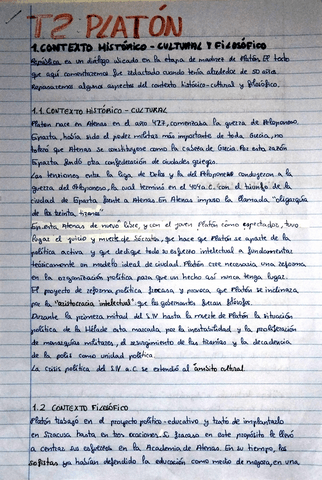 T2 PLATÓN
1. CONTEXTO HISTÓRICO - CULTURAL Y FILOSÓFICO
República es un diálogo ubicado en la etapa de madurez de Platón. El texto
que aquí comentaremos fue redactado cuando tenía alrededor de 50 años
Repasaremos algunos aspectos del contexto histórico-cultural y filosófico.
1.1 CONTEXTO HISTÓRICO - CULTURAL
Platón nace en Atenas en el año 427, comenzaba la guerra de Peloponeso.
Esparta, había sido el poder militar más importante de toda Grecia, no
toleró que Atenas se constituyese como la cabeza de Grecia. Por esta razón
Esparta fundó otra confederación de ciudades griegas.
Las tensiones entre la liga de Delos y la del Peloponeso condujeron a la
guerra del Peloponeso, la cual terminó en el 404 a.C. con el triunfo de la
ciudad de Esparta frente a Atenas. En Atenas impuso la llamada "oligarquía
de los treinta tiranos"
En esta Atenas de nuevo libre, y con el joven Platón como espectador, tuvo
lugar el juicio y muerte de Sócrates, que hace que Platón se aparte de la
política activa y que dedique todo su esfuerzo intelectual a fundamentar
teóricamente un modelo ideal de ciudad. Platón cree necesaria una reforma
en la organización política para que un hecho así nunca tenga lugar.
El proyecto de reforma política fracasa y provoca que Platón se inclinara
por la "aristocracia intelectual" que los gobernantes fueran filósofos.
Durante la primera mitad del S.IV hasta la muerte de Platón la situación
política de la Hélade esta marcada por la inestabilidad y la proliferación
de monarquías militares, el resurgimiento de las tiranías y la decadencia
de la polis como unidad política
La crisis política del S.IV a.C. se extendió al ámbito cultural.
1.2 CONTEXTO FILOSÓFICO
Platón trabajó en el proyecto político-educativo y trató de implantarlo
en Siracusa hasta en tres ocasiones. Su fracaso en este propósito le llevó
a centrar sus esfuerzos en la Academia de Atenas. En su tiempo, los
sofistas ya habían defendido la educación como medio de mejora, en una